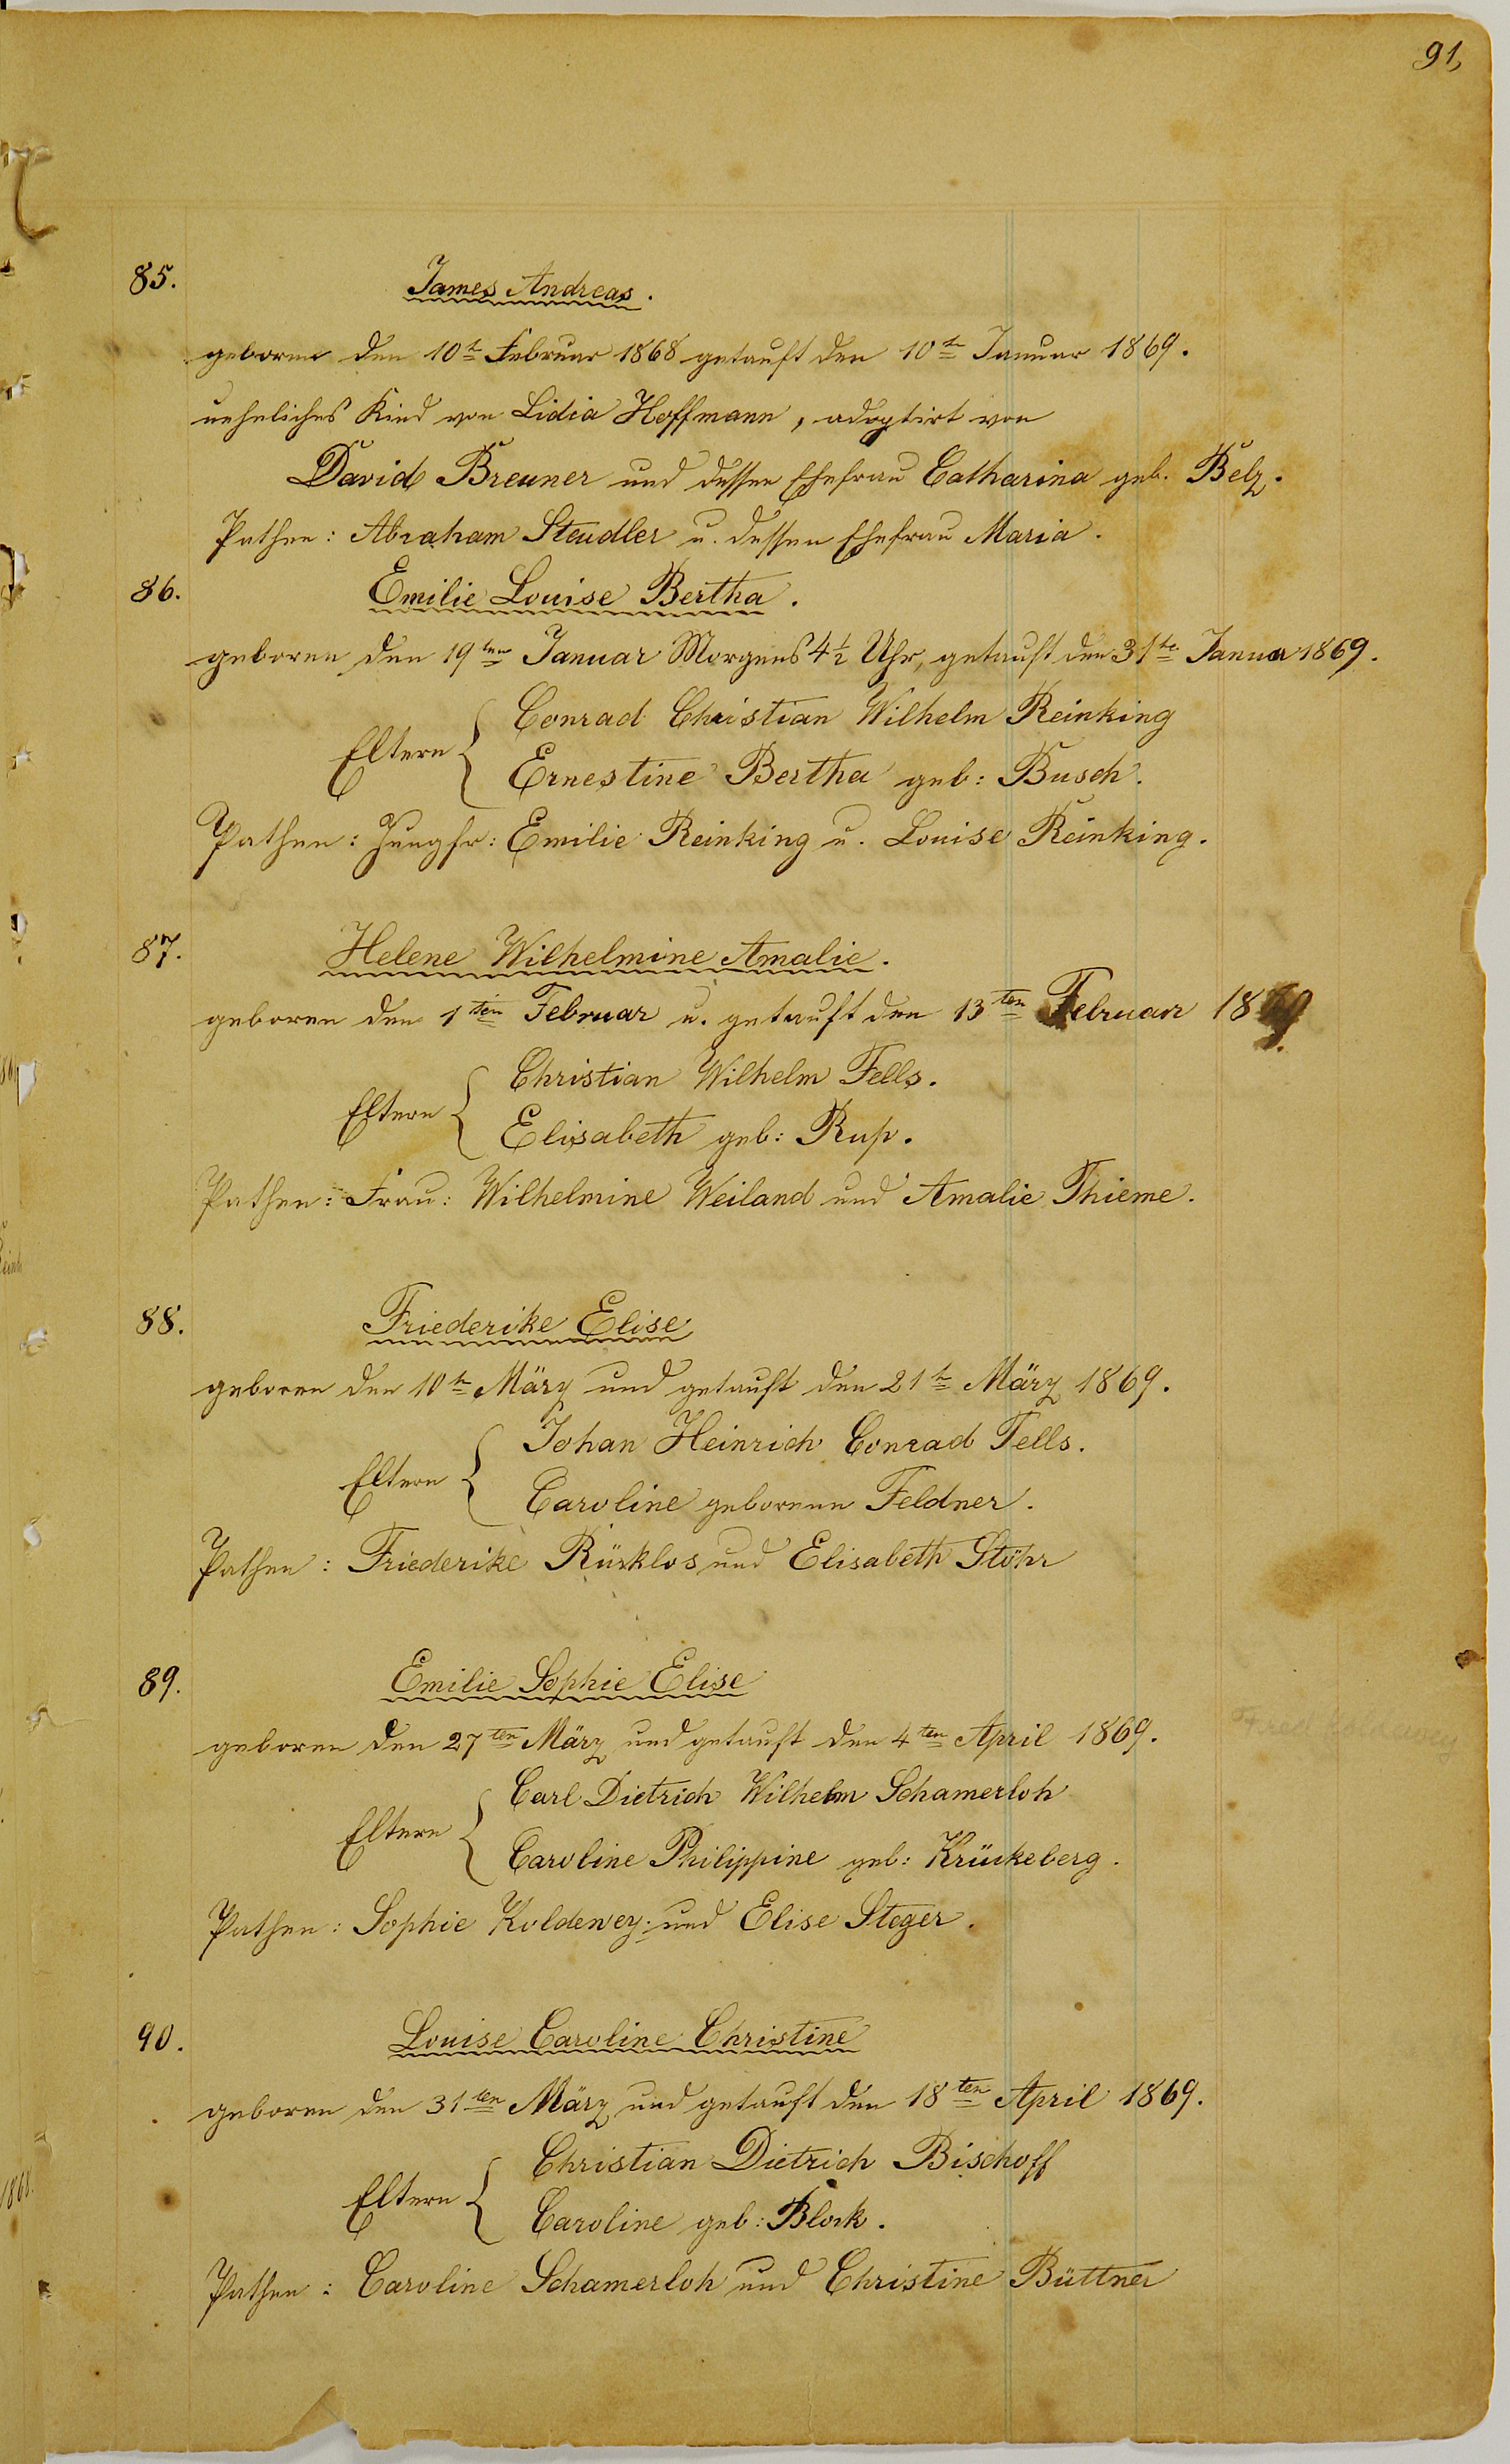 91,
85. James Andreas.
geboren den 10t Februar 1868 getauft den 10t Januar 1869.
uneheliches Kind von Lidia Hoffmann, adoptirt von
David Breuner und dessen Ehefrau Catharina geb. Belz.
Pathen: Abraham Steudler u. dessen Ehefrau Maria.
86. Emilie Louise Bertha.
geboren den 19ten Januar Morgens 4½ Uhr, getauft den 31te Januar 1869.
Eltern { Conrad Christian Wilhelm Reinking
Ernestine Bertha geb: Busch.
Pathen: Jungfr: Emilie Reinking u. Louise Reinking.
87. Helene Wilhelmine Amalie.
geboren den 1ten Februar u. getauft den 13ten Februar 1869.
Eltern { Christian Wilhelm Fells.
Elisabeth geb: Rup.
Pathen: Frau: Wilhelmine Weiland und Amalie Thieme.
88. Friederike Elise
geboren den 10t März und getauft den 21t März 1869.
Eltern { Johan Heinrich Conrad Fells.
Caroline geborene Feldner.
Pathen: Friederike Rücklos und Elisabeth Stöhr
89. Emilie Sophie Elise
geboren den 27ten März und getauft den 4ten April 1869.
Eltern { Carl Dietrich Wilhelm Schamerloh
Caroline Philippine geb: Krückeberg.
Pathen: Sophie Koldewey. und Elise Steger.
90. Louise Caroline Christine
geboren den 31ten März und getauft den 18ten April 1869.
Eltern { Christian Dietrich Bischoff
Caroline geb: Block.
Pathen: Caroline Schamerloh und Christine Büttner